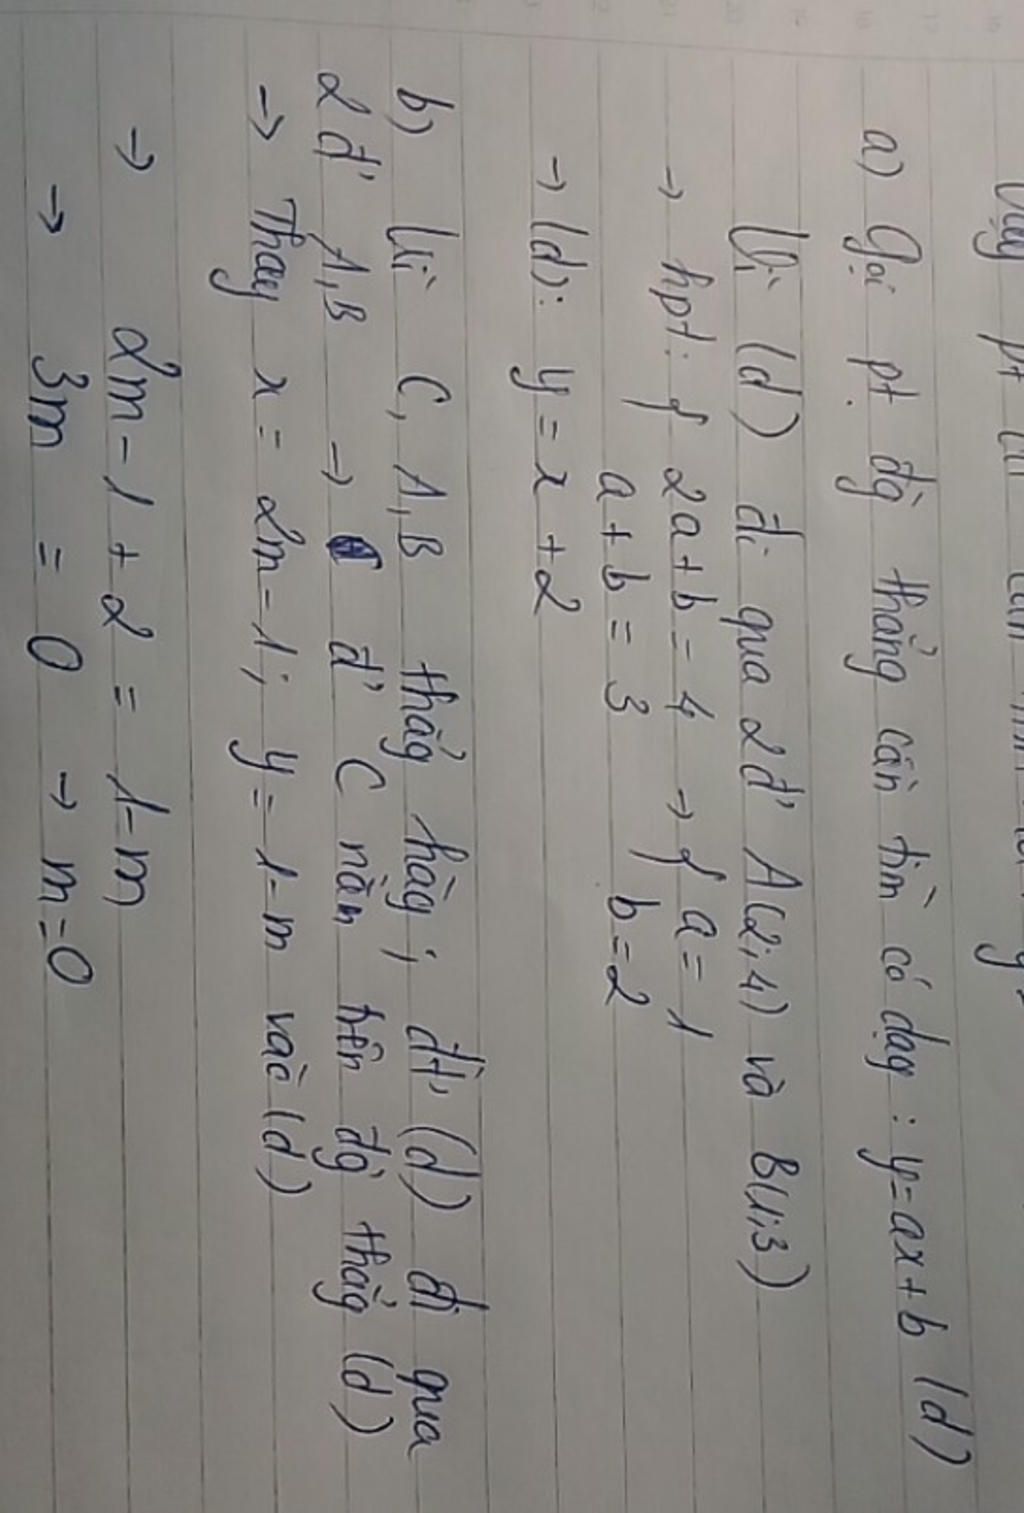 a) Gọi pt đg thẳng cần tìm có dạg : y=ax+b (d)
Vì (d) đi qua 2đ' A(2;4) và B(1;3)
→ hpt: { 2a+b=4 → { a=1
a+b=3 b=2
→ (d): y=x+2
b) Vì C, A,B thẳg hàg; đt' (d) đi qua
2đ' A,B → đ' C nằm trên đg thẳg (d)
→ Thay x=2m-1; y=1-m vào (d)
→ 2m-1+2=1-m
→ 3m=0 → m=0